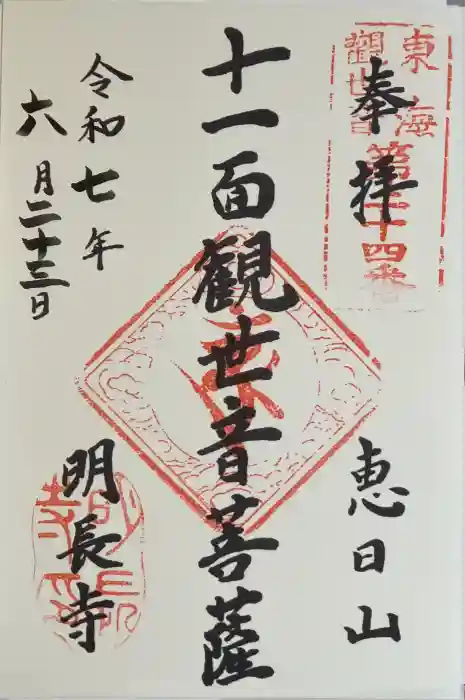 奉拝
東海
観世音
第三十四番
恵日山
十一面観世音菩薩
令和七年
六月二十三日
明長寺